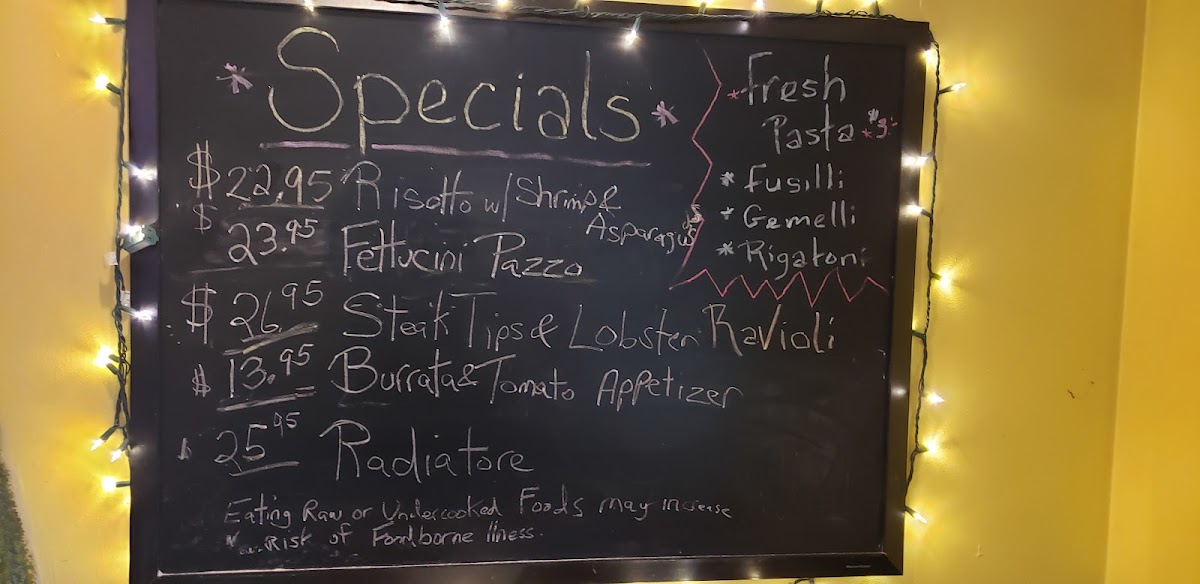 * Specials *
$22.95 Risotto w/ Shrimp &
Asparagus
$23.95 Fettucini Pazzo
$26.95 Steak Tips & Lobster Ravioli
$13.95 Burrata & Tomato Appetizer
$25.95 Radiatore
Eating Raw or Undercooked Foods may increase
Risk of Foodborne llness.
* Fresh
Pasta *
* Fusilli
* Gemelli
* Rigatoni